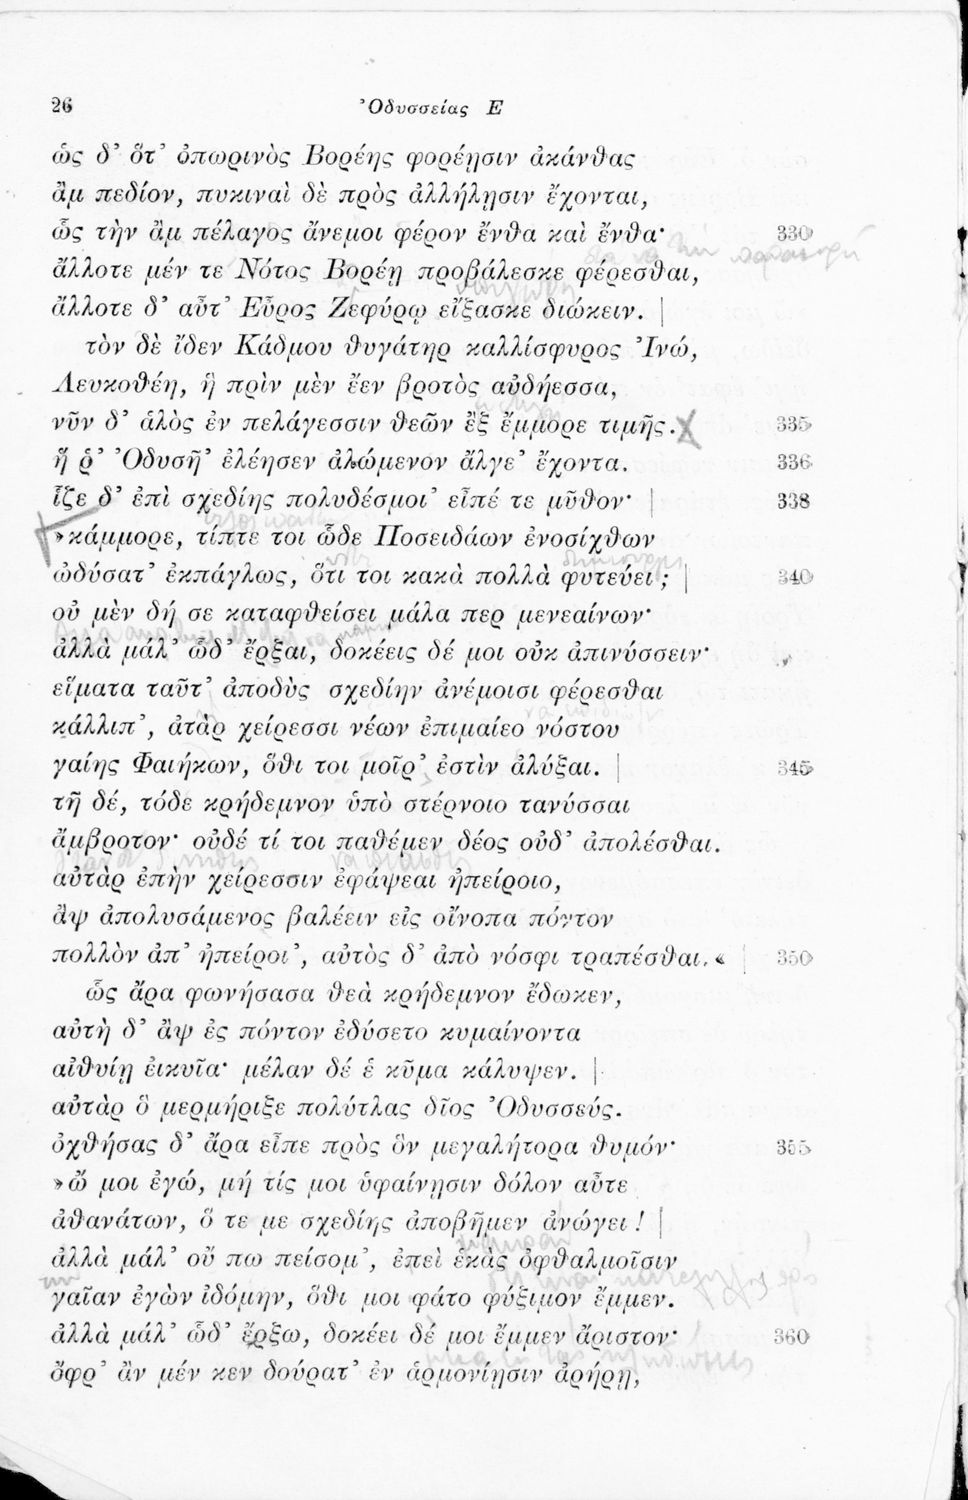 26 Ὀδυσσείας Ε
ὡς δ' ὅτ' ὀπωρινὸς Βορέης φορέησιν ἀκάνθας
ἂμ πεδίον, πυκιναὶ δὲ πρὸς ἀλλήλησιν ἔχονται,
ὣς τὴν ἂμ πέλαγος ἄνεμοι φέρον ἔνθα καὶ ἔνθα· 330
ἄλλοτε μέν τε Νότος Βορέῃ προβάλεσκε φέρεσθαι,
ἄλλοτε δ' αὖτ' Εὖρος Ζεφύρῳ εἴξασκε διώκειν. |
τὸν δὲ ἴδεν Κάδμου θυγάτηρ καλλίσφυρος Ἰνώ,
Λευκοθέη, ἣ πρὶν μὲν ἔεν βροτὸς αὐδήεσσα,
νῦν δ' ἁλὸς ἐν πελάγεσσιν θεῶν ἒξ ἔμμορε τιμῆς. 335
ἥ ῥ' Ὀδυσῆ' ἐλέησεν ἀλώμενον ἄλγε' ἔχοντα. 336
ἷζε δ' ἐπὶ σχεδίης πολυδέσμοι' εἶπέ τε μῦθον· | 338
»κάμμορε, τίπτε τοι ὧδε Ποσειδάων ἐνοσίχθων
ὠδύσατ' ἐκπάγλως, ὅτι τοι κακὰ πολλὰ φυτεύει; | 340
οὐ μὲν δή σε καταφθείσει μάλα περ μενεαίνων·
ἀλλὰ μάλ' ὧδ' ἔρξαι, δοκέεις δέ μοι οὐκ ἀπινύσσειν·
εἵματα ταῦτ' ἀποδὺς σχεδίην ἀνέμοισι φέρεσθαι
κάλλιπ', ἀτὰρ χείρεσσι νέων ἐπιμαίεο νόστου
γαίης Φαιήκων, ὅθι τοι μοῖρ' ἐστὶν ἀλύξαι. | 345
τῆ δέ, τόδε κρήδεμνον ὑπὸ στέρνοιο τανύσσαι
ἄμβροτον· οὐδέ τί τοι παθέμεν δέος οὐδ' ἀπολέσθαι.
αὐτὰρ ἐπὴν χείρεσσιν ἐφάψεαι ἠπείροιο,
ἂψ ἀπολυσάμενος βαλέειν εἰς οἴνοπα πόντον
πολλὸν ἀπ' ἠπείροι', αὐτὸς δ' ἀπὸ νόσφι τραπέσθαι.« | 350
ὣς ἄρα φωνήσασα θεὰ κρήδεμνον ἔδωκεν,
αὐτὴ δ' ἂψ ἐς πόντον ἐδύσετο κυμαίνοντα
αἰθυίῃ ἐικυῖα· μέλαν δέ ἑ κῦμα κάλυψεν. |
αὐτὰρ ὃ μερμήριξε πολύτλας δῖος Ὀδυσσεύς.
ὀχθήσας δ' ἄρα εἶπε πρὸς ὃν μεγαλήτορα θυμόν· 355
»ὤ μοι ἐγώ, μή τίς μοι ὑφαίνησιν δόλον αὖτε
ἀθανάτων, ὅ τε με σχεδίης ἀποβῆμεν ἀνώγει! |
ἀλλὰ μάλ' οὔ πω πείσομ', ἐπεὶ ἑκὰς ὀφθαλμοῖσιν
γαῖαν ἐγὼν ἰδόμην, ὅθι μοι φάτο φύξιμον ἔμμεν.
ἀλλὰ μάλ' ὧδ' ἔρξω, δοκέει δέ μοι ἔμμεν ἄριστον· 360
ὄφρ' ἂν μέν κεν δούρατ' ἐν ἁρμονίῃσιν ἀρήρῃ,